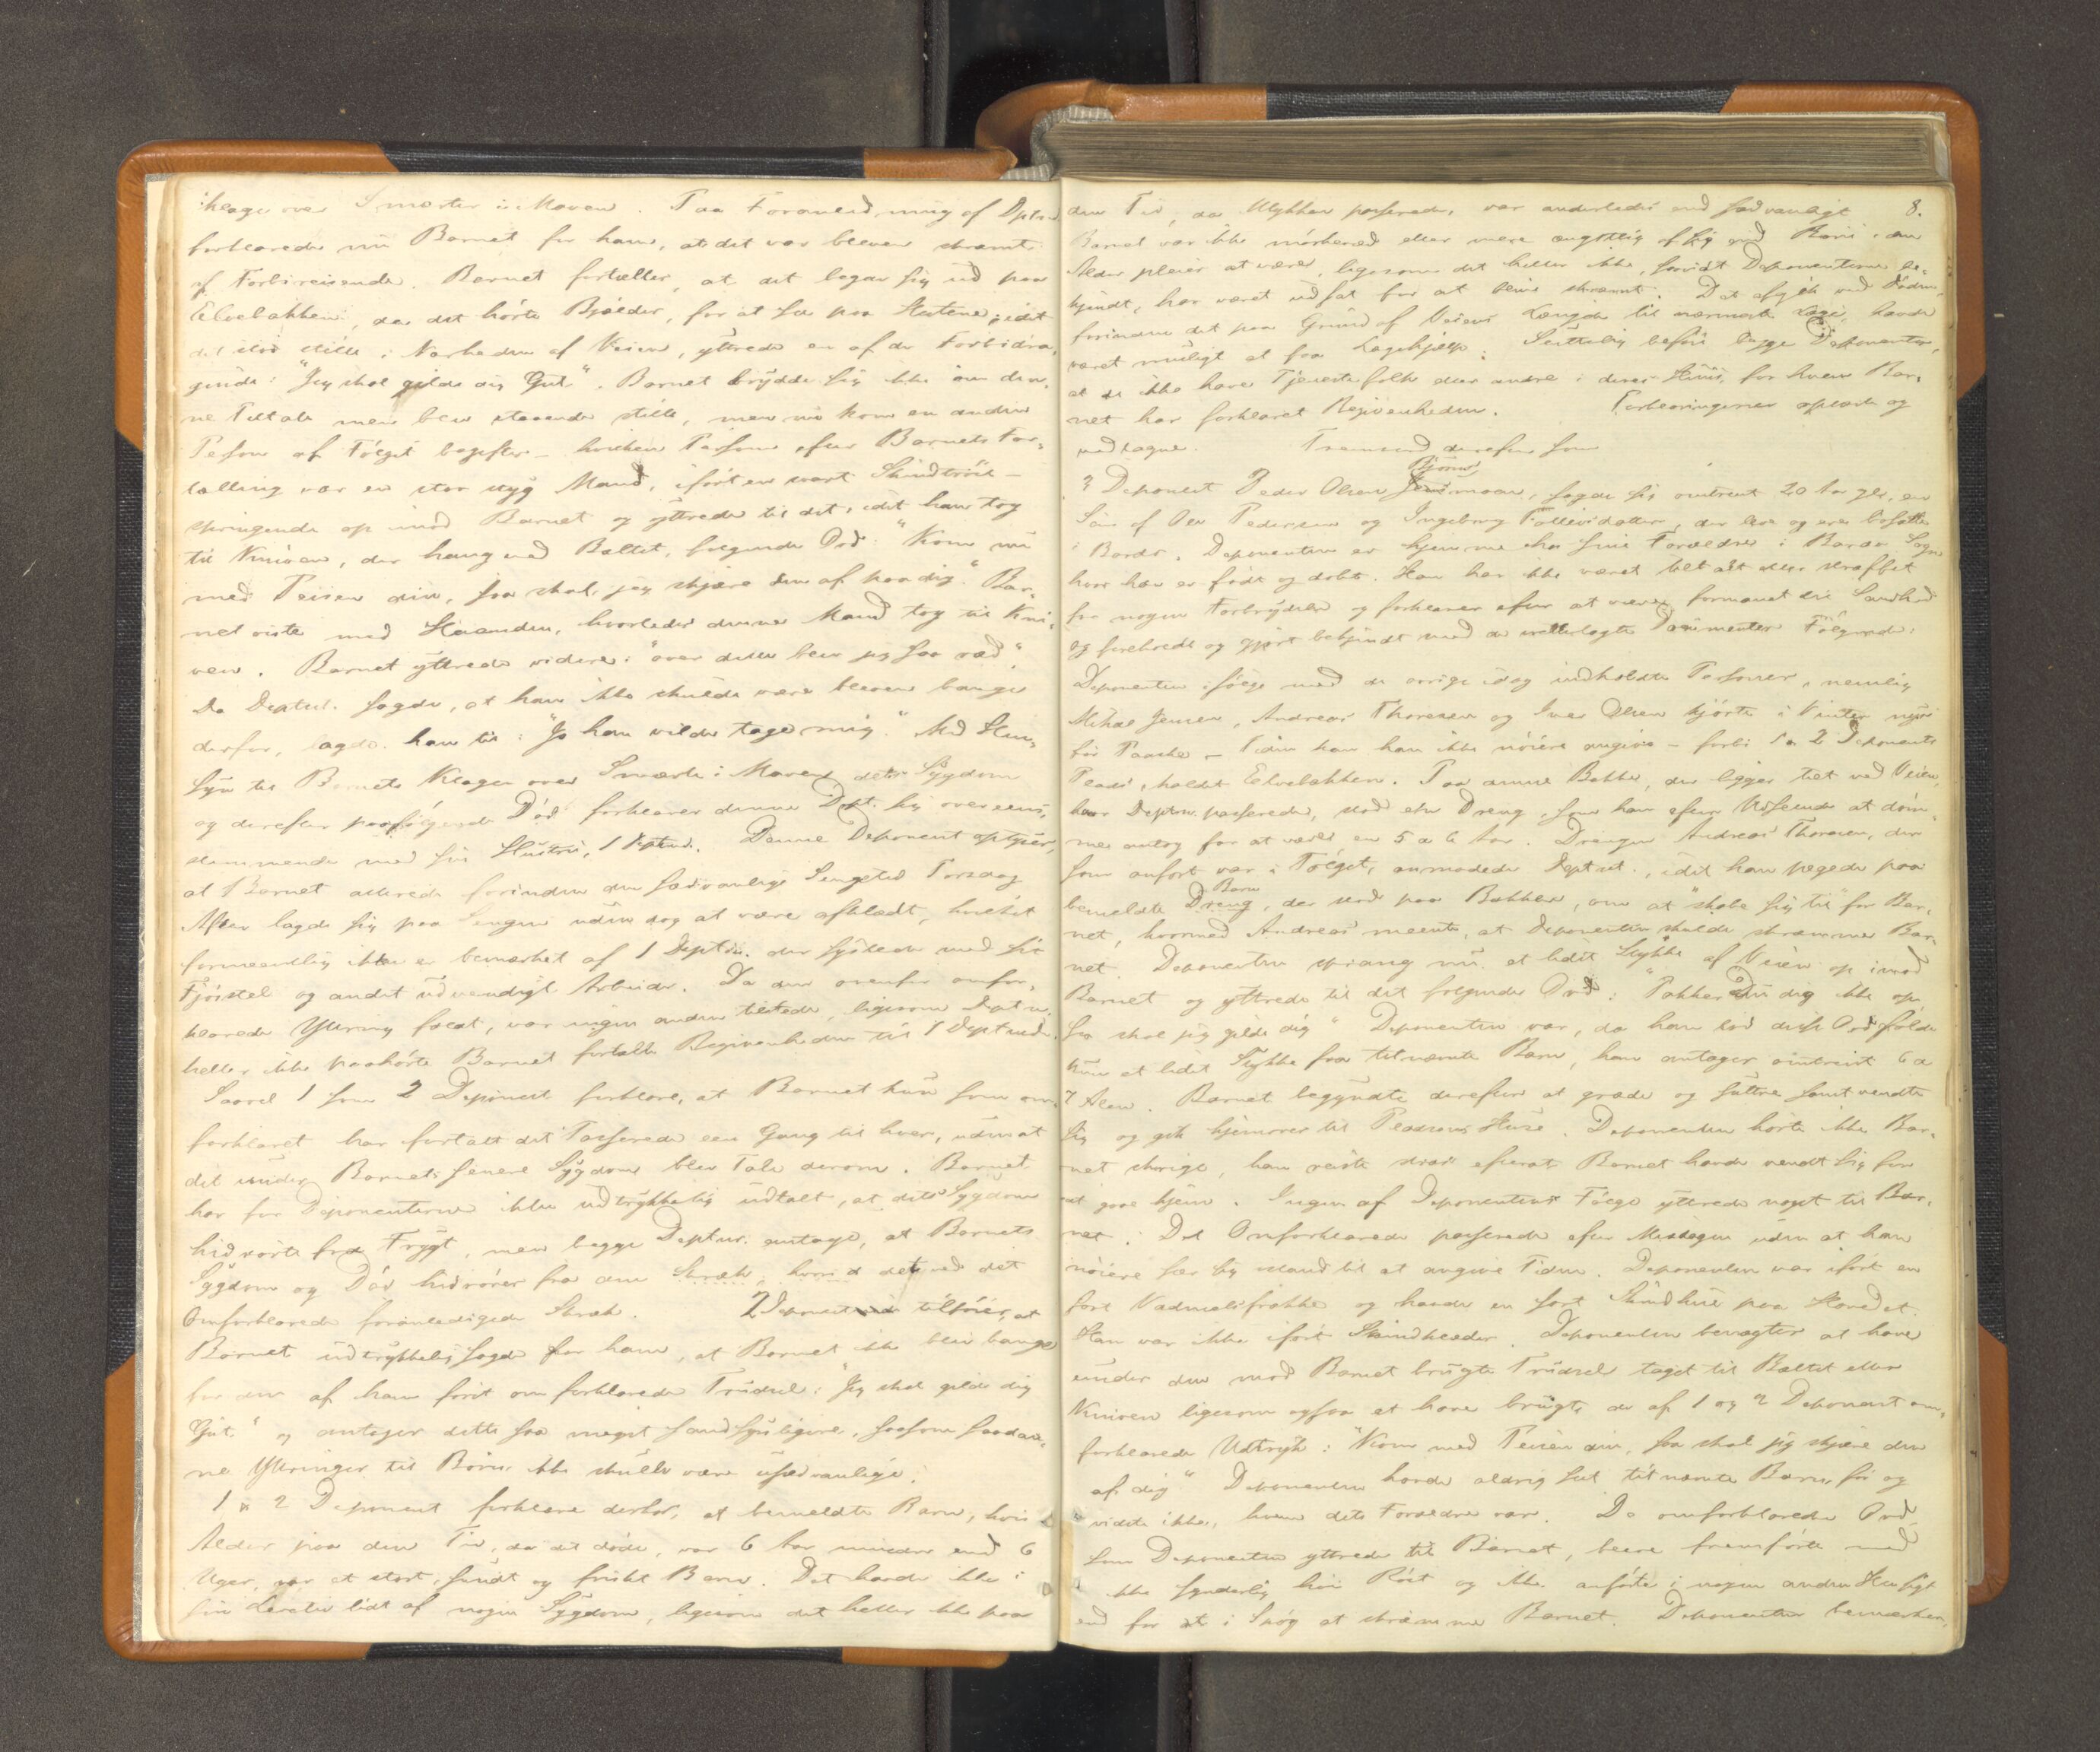 klage over Smerter i Maven. Paa Foranledning af Dptn.
forklarede nu Barnet for ham, at det var bleven skræmt
af Forbireisende. Barnet fortæller, at det begav sig ud paa
Elvebakken, da det hørte Bjælder, for at see paa Hestene; idet
det stod stille i Nærheden af Veien, yttrede en af de Forbidra-
gende: "Jeg skal gilde dig Gut". Barnet brydde sig ikke om den-
ne Tiltale men blev staaende stille, men nu kom en anden
Person af Følget bagefter – hvilken Person efter Barnets For-
tælling var en stor styg Mand, iført en svart Skindtröie –
springende op imod Barnet og yttrede til det, idet han tog
til Kniven, der hang ved Bæltet, følgende Ord: "Kom nu
med Peisen din, saa skal jeg skjære den af paa dig." Bar-
net viste med Haanden, hvorledes denne Mand tog til Kni-
ven. Barnet yttrede videre: "over dette blev jeg saa ræd".
Da Deptn. sagde, at han ikke skulde være bleven bange
derfor, lagde han til: "Jo han vilde tage mig." Med Hen-
syn til Barnets Klager over Smerte i Maven dets Sygdom
og derefter paafølgende Död forklarer denne Dpt. sig overeens-
stemmende med sin Hustru, 1 Dptnd. Denne Deponent oplyser,
at Barnet allerede forinden den sædvanlige Sengetid Torsdag
Aften lagde sig paa Sengen uden dog at være afklædt, hvilket
formeentlig ikke er bemærket af 1 Deptn. der syslede med sit
Fjösstel og andet udvendigt Arbeide. Da den ovenfor omfor-
klarede Yttring faldt, var ingen anden tilstede, ligesom Dept n.
heller ikke paahørte Barnet fortælle Begivenheden til 1 Deptnd.
Saavel 1 som 2 Deponent forklare, at Barnet kun som om-
forklaret har fortalt det Passerede een Gang til hver, uden at
det under Barnets senere Sygdom blev Tale derom. Barnet
har for Deponenterne ikke udtrykkelig udtalt, at dets Sygdom
hidrörte fra Frygt, men begge Deptnr. antage, at Barnets
Sygdom og Död hidrörer fra den Skræk, hvori det ved det
Omforklarede foranledigede Skræk. 2 Deponent tilföier, at
Barnet udtrykkelig sagde for ham, at Barnet ikke blev bange
for den af ham først omforklarede Trudsel: "Jeg skal gilde dig
Gut" og antager dette saa meget sandsynligere, saasom saadan-
ne Yttringer til Börn ikke skulle være usædvanlige.
1 & 2 Deponent forklare derhos, at bemeldte Barn, hvis
Alder paa den Tid, da det döde, var 6 Aar mindre end 6
Uger, var et stort, sundt og friskt Barn. Det havde ikke i
sin Levetid lidt af nogen Sygdom, ligesom det heller ikke paa
8.
den Tid, da Ulykken passerede, var anderledes end sædvanligt
Barnet var ikke mørkeræd eller mere ængstlig af sig end Börn i den
Alder pleier at være, ligesom det heller ikke, saavidt Deponenterne be-
kjendt, har været udsat for at blive skræmt. Det afgik ved Döden,
forinden det paa Grund af Veiens Længde til nærmeste Læge, havde
været muligt at faa Lægehjælp. Sluttelig besvare begge Deponenter,
at de ikke have Tjenestefolk eller andre i deres Huus, for hvem Bar-
net har forklaret Begivenheden. Forklaringerne oplæste og
vedtagne. Fremstod derefter som
3 Deponent Peder Olsen Björnsmoen, sagde sig omtrent 20 Aar gl., en
Sön af Ole Pedersen og Ingeborg Tollevsdatter, der leve og ere bosatte
i Bardo. Deponenten er hjemme hos sine Forældre i Bardo Sogn
hvor han er födt og döbt. Han har ikke været tiltalt eller straffet
for nogen Forbrydelse og forklarer efter at være formanet til Sandhed
og foreholdt og gjort bekjendt med de irettelagte Documenter Fölgende:
Deponenten ifölge med de övrige idag indkaldte Personer, nemlig
Mikal Jensen, Andreas Thoresen og Iver Olsen kjörte i Vinter nys
för Paaske – Tiden kan han ikke nöiere angive – forbi 1 & 2 Deponents
Plads, kaldet Elvebakken. Paa denne Bakke, der ligger tæt ved Veien,
hvor Deptn. passerede, stod eln Dreng, som han efter Udseende at döm-
me antog for at være en 5 a 6 Aar. Drengen Andreas Thoresen, der
som anført var i Fölget, anmodede Deptnt., idet han pegede paa
bemeldte Barn, der stod paa Bakken, om at "skabe sig til" for Bar-
net, hvormed Andreas meente, at Deponenten skulde skræmme Bar-
net. Deponenten sprang nu et lidet Stykke af Veien op imod
Barnet og yttrede til det følgende Ord: "Pakker Du dig ikke op
saa skal jeg gilde dig" Deponenten var, da han lod disse Ord falde
kun et lidet Stykke fra tilnævnte Barn, han antager omtrent 6 a
7 Alen. Barnet begyndte derefter at græde og suttre samt vendte
sig og gik hjemover til Pladsens Huse. Deponenten hørte ikke Bar-
net skrige, han reiste strax efterat Barnet havde vendt sig for
at gaae hjem. Ingen af Deponentens Fölge yttrede noget til Bar-
net. Det Omforklarede passerede efter Middagen uden at han
nöiere ser sig istand til at angive Tiden. Deponenten var ifört en
sort Vadmelsfrakke og havde en sort Skindhue paa Hovedet.
Han var ikke ifört Skindklæder. Deponenten benægter at have
under den mod Barnet brugte Trudsel taget til Bæltet eller
Kniven ligesom ogsaa at have brugt, de af 1 og 2 Deponent om-
forklarede Udtryk: "Kom med Peisen din, saa skal jeg skjære den
af dig" Deponenten havde aldrig seet tilnævnte Barn før og
vidste ikke, hvem dets Forældre var. De omforklarede Ord,
som Deponenten yttrede til Barnet, bleve fremförte med
ikke synderlig höi Röst og ikke anførte i nogen anden Hensigt
end for at i Spög at skræmme Barnet. Deponenten bemærker,